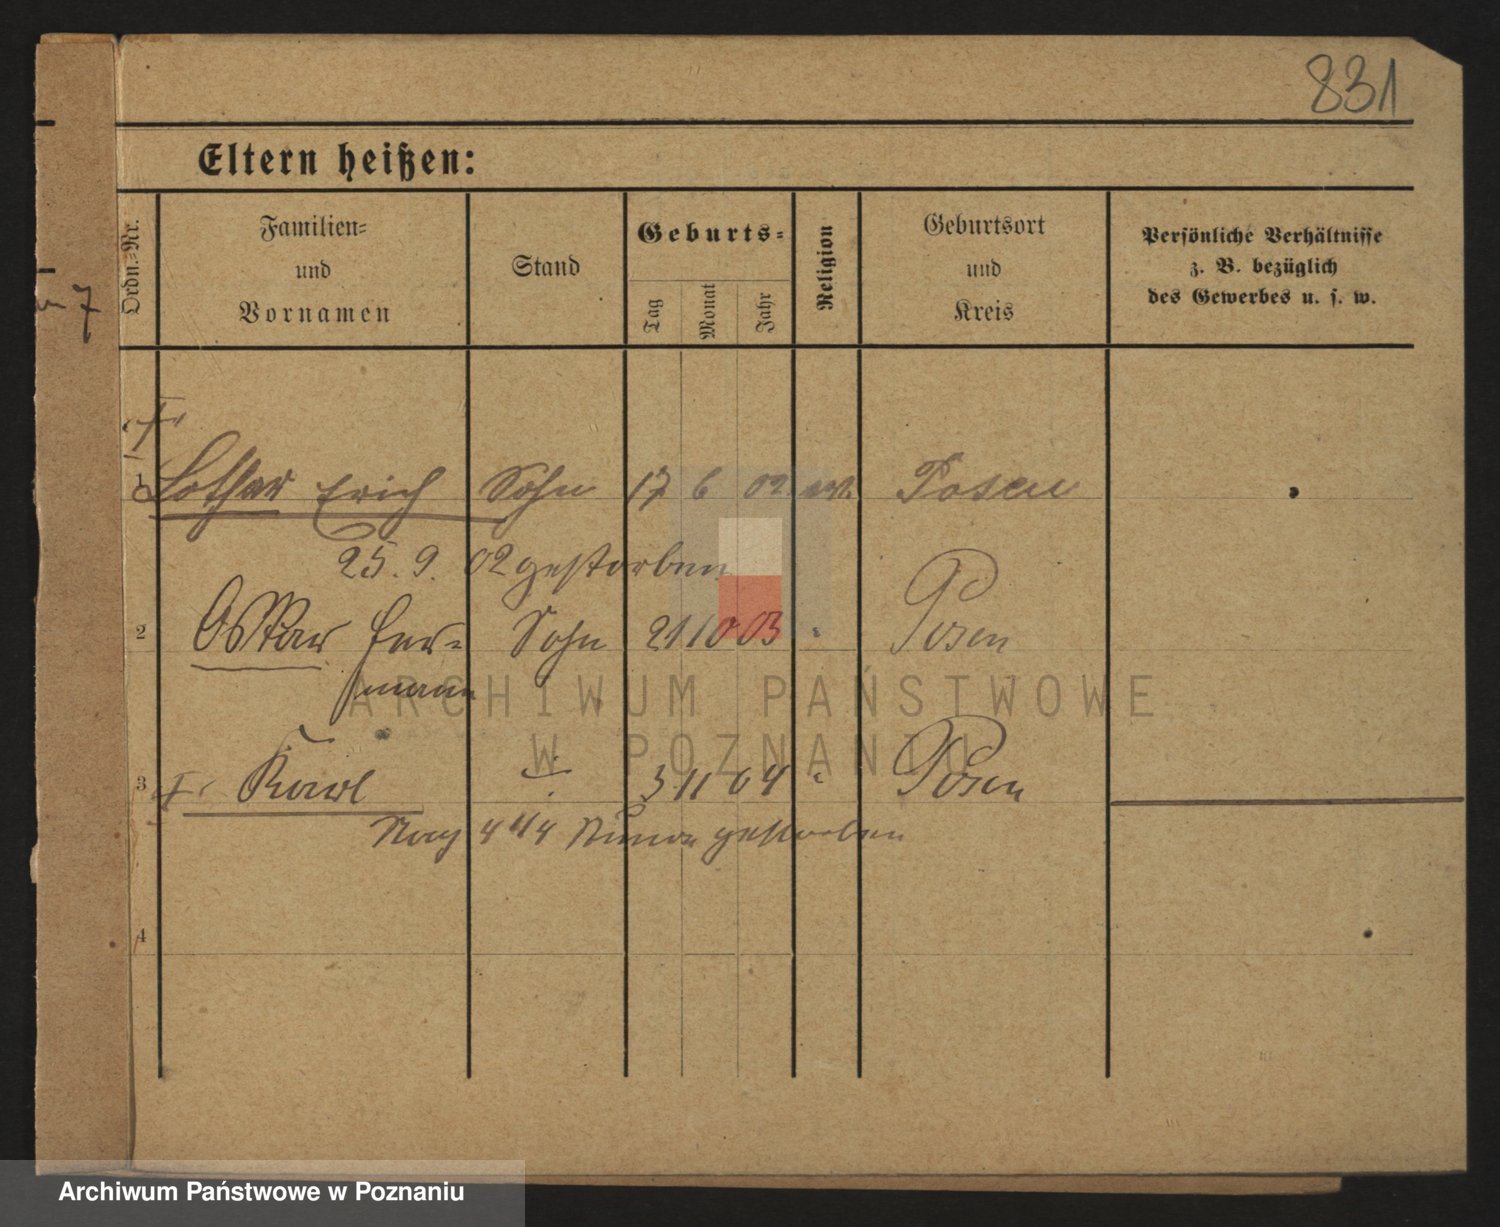 831
Eltern heißen:
Ordn.-Nr.
Familien-
und
Vornamen
Stand
Geburts-
Tag
Monat
Jahr
Religion
Geburtsort
und
Kreis
Persönliche Verhältnisse
z. B. bezüglich
des Gewerbes u. s. w.
7
1 Lothar Erich Sohn 17 6 02 ev. Posen
25. 9. 02 gestorben
2 Oskar Her- Sohn 21 10 03 " Posen
mann
3 Karl 3 11 04 " Posen
Nach 4 gestorben
4
ARCHIWUM PAŃSTWOWE
W POZNANIU
Archiwum Państwowe w Poznaniu